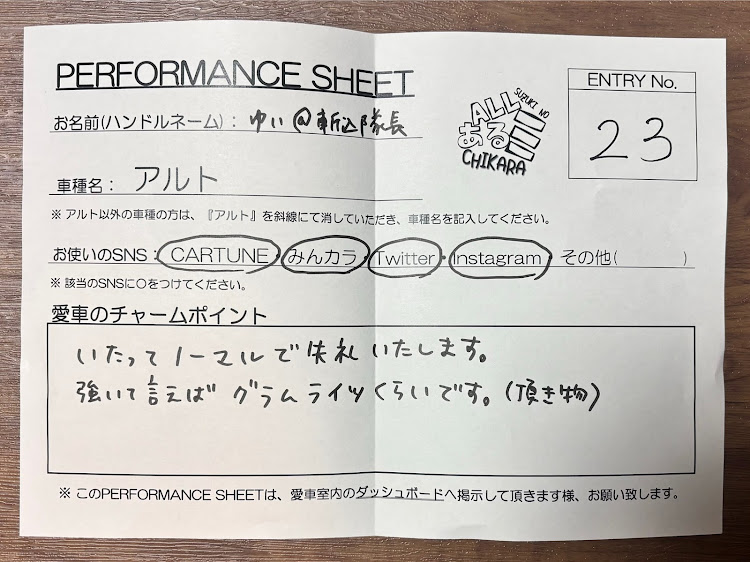 PERFORMANCE SHEET
ALL SUZUKI NO
あるミ
CHIKARA
ENTRY No.
23
お名前(ハンドルネーム)：ゆい@斬込隊長
車種名：アルト
※ アルト以外の車種の方は、『アルト』を斜線にて消していただき、車種名を記入してください。
お使いのSNS：CARTUNE・みんカラ・Twitter・Instagram・その他(　　　　)
※ 該当のSNSに○をつけてください。
愛車のチャームポイント
いたってノーマルで失礼いたします。
強いて言えば グラムライツくらいです。(頂き物)
※ このPERFORMANCE SHEETは、愛車室内のダッシュボードへ掲示して頂きます様、お願い致します。